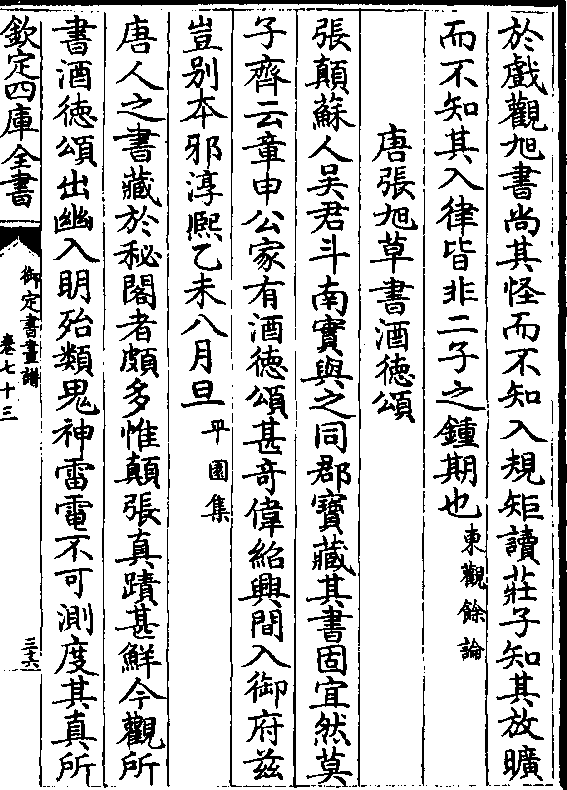 於戲觀旭書尚其怪而不知入規矩讀莊子知其放曠
而不知其入律皆非二子之鍾期也東觀餘論
唐張旭草書酒徳頌
張顛蘇人吳君斗南實與之同郡寶藏其書固宜然莫
子齊云章申公家有酒徳頌甚奇偉紹興間入御府兹
豈别本邪淳熈乙未八月旦平園集
唐人之書藏於秘閣者頗多惟顛張真蹟甚鮮今觀所
書酒徳頌出幽入明殆類鬼神雷電不可測度其真所
欽定四庫全書
御定書畫譜
卷七十三
三六